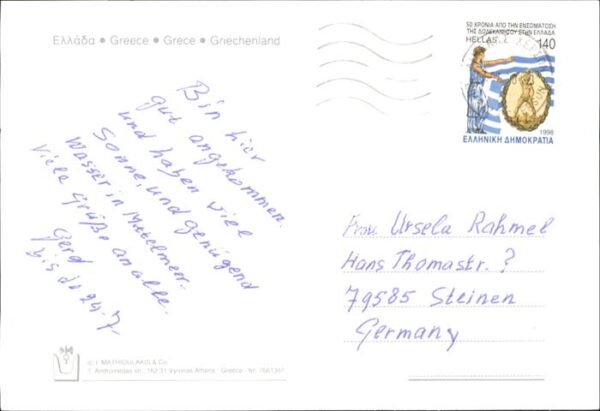 Ελλάδα • Greece • Grece • Griechenland
50 ΧΡΟΝΙΑ ΑΠΟ ΤΗΝ ΕΝΣΩΜΑΤΩΣΗ
ΤΗΣ ΔΩΔΕΚΑΝΗΣΟΥ ΣΤΗΝ ΕΛΛΑΔΑ
HELLAS 140
1998
ΕΛΛΗΝΙΚΗ ΔΗΜΟΚΡΑΤΙΑ
Bin hier
gut angekommen.
und haben viel
Sonne, und genügend
Wasser in Mittelmeer.
Viele Grüße an alle.
Gerd
bis 24.7
Frau Ursela Rahmel
Hans Thomastr. ?
79585 Steinen
Germany
MATHIOULAKIS & Co.
1, Andromedas str., 162 31 Vyronas Athens - Greece - Nr. 7661351